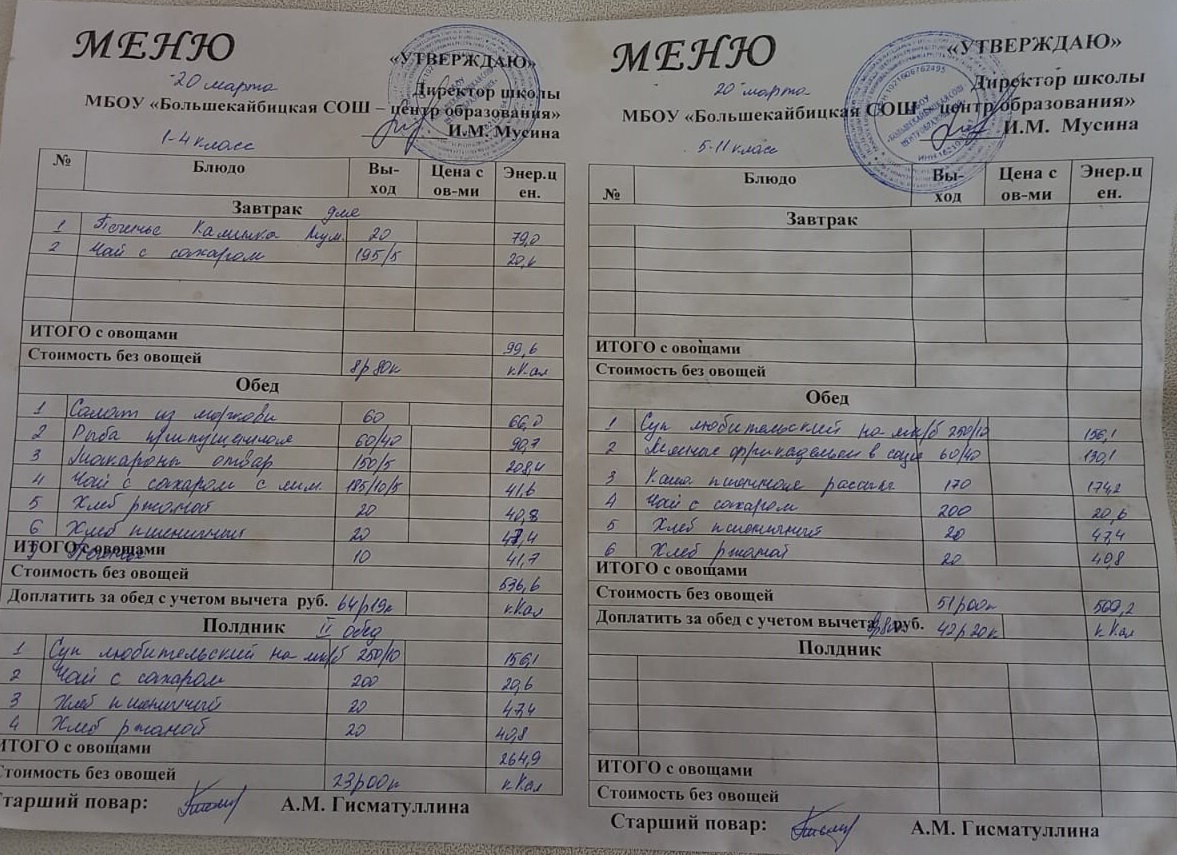 МЕНЮ
20 марта
«УТВЕРЖДАЮ»
Директор школы
МБОУ «Большекайбицкая СОШ – центр образования»
И.М. Мусина
1-4 класс
№ Блюдо Вы-ход Цена с ов-ми Энер.ц ен.
Завтрак
1 Печенье Калинка 20 79,0
2 Чай с сахаром 195/5 20,6
ИТОГО с овощами 99,6
Стоимость без овощей 8р80к кКал
Обед
1 Салат из моркови 60 66,0
2 Рыба припущенная 60/40 90,7
3 Макароны отвар 150/5 208,4
4 Чай с сахаром с лим. 185/10/5 41,6
5 Хлеб ржаной 20 40,8
6 Хлеб пшеничный 20 47,4
7 Печенье 10 41,7
ИТОГО с овощами
Стоимость без овощей 536,6
Доплатить за обед с учетом вычета руб. 64р19к кКал
Полдник II обед
1 Суп любительский на мк/б 250/10 156,1
2 Чай с сахаром 200 20,6
3 Хлеб пшеничный 20 47,4
4 Хлеб ржаной 20 40,8
ИТОГО с овощами 264,9
Стоимость без овощей 23р00к кКал
Старший повар: А.М. Гисматуллина
МЕНЮ
20 марта
«УТВЕРЖДАЮ»
Директор школы
МБОУ «Большекайбицкая СОШ – центр образования»
И.М. Мусина
5-11 класс
№ Блюдо Вы-ход Цена с ов-ми Энер.ц ен.
Завтрак
ИТОГО с овощами
Стоимость без овощей
Обед
1 Суп любительский на мк/б 250/10 156,1
2 Мясные фрикадельки в соусе 60/40 130,1
3 Каша пшенная рассып. 170 174,2
4 Чай с сахаром 200 20,6
5 Хлеб пшеничный 20 47,4
6 Хлеб ржаной 20 40,8
ИТОГО с овощами
Стоимость без овощей 51р00к 569,2
Доплатить за обед с учетом вычета руб. 42р20к кКал
Полдник
ИТОГО с овощами
Стоимость без овощей
Старший повар: А.М. Гисматуллина